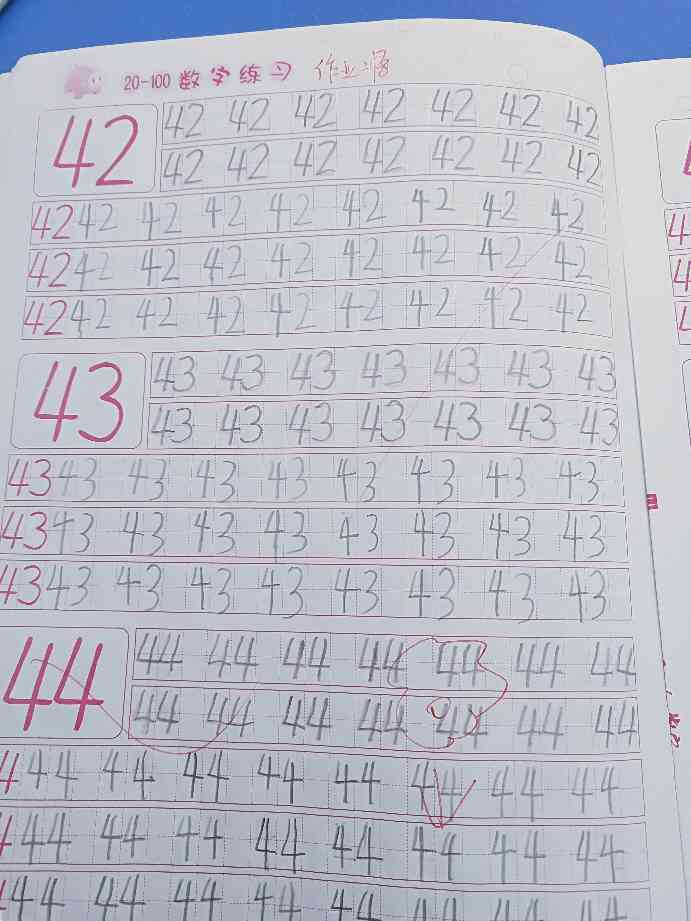 20-100 数字练习
42 42 42 42 42 42 42 42
42 42 42 42 42 42 42
42 42 42 42 42 42 42 42 42
42 42 42 42 42 42 42 42 42
42 42 42 42 42 42 42 42 42
43 43 43 43 43 43 43 43
43 43 43 43 43 43 43
43 43 43 43 43 43 43 43 43
43 43 43 43 43 43 43 43 43
43 43 43 43 43 43 43 43 43
44 44 44 44 44 44 44 44
44 44 44 44 44 44 44
4 44 44 44 44 44 44 44 44
4 44 44 44 44 44 44 44 44
44 44 44 44 44 44 44 44